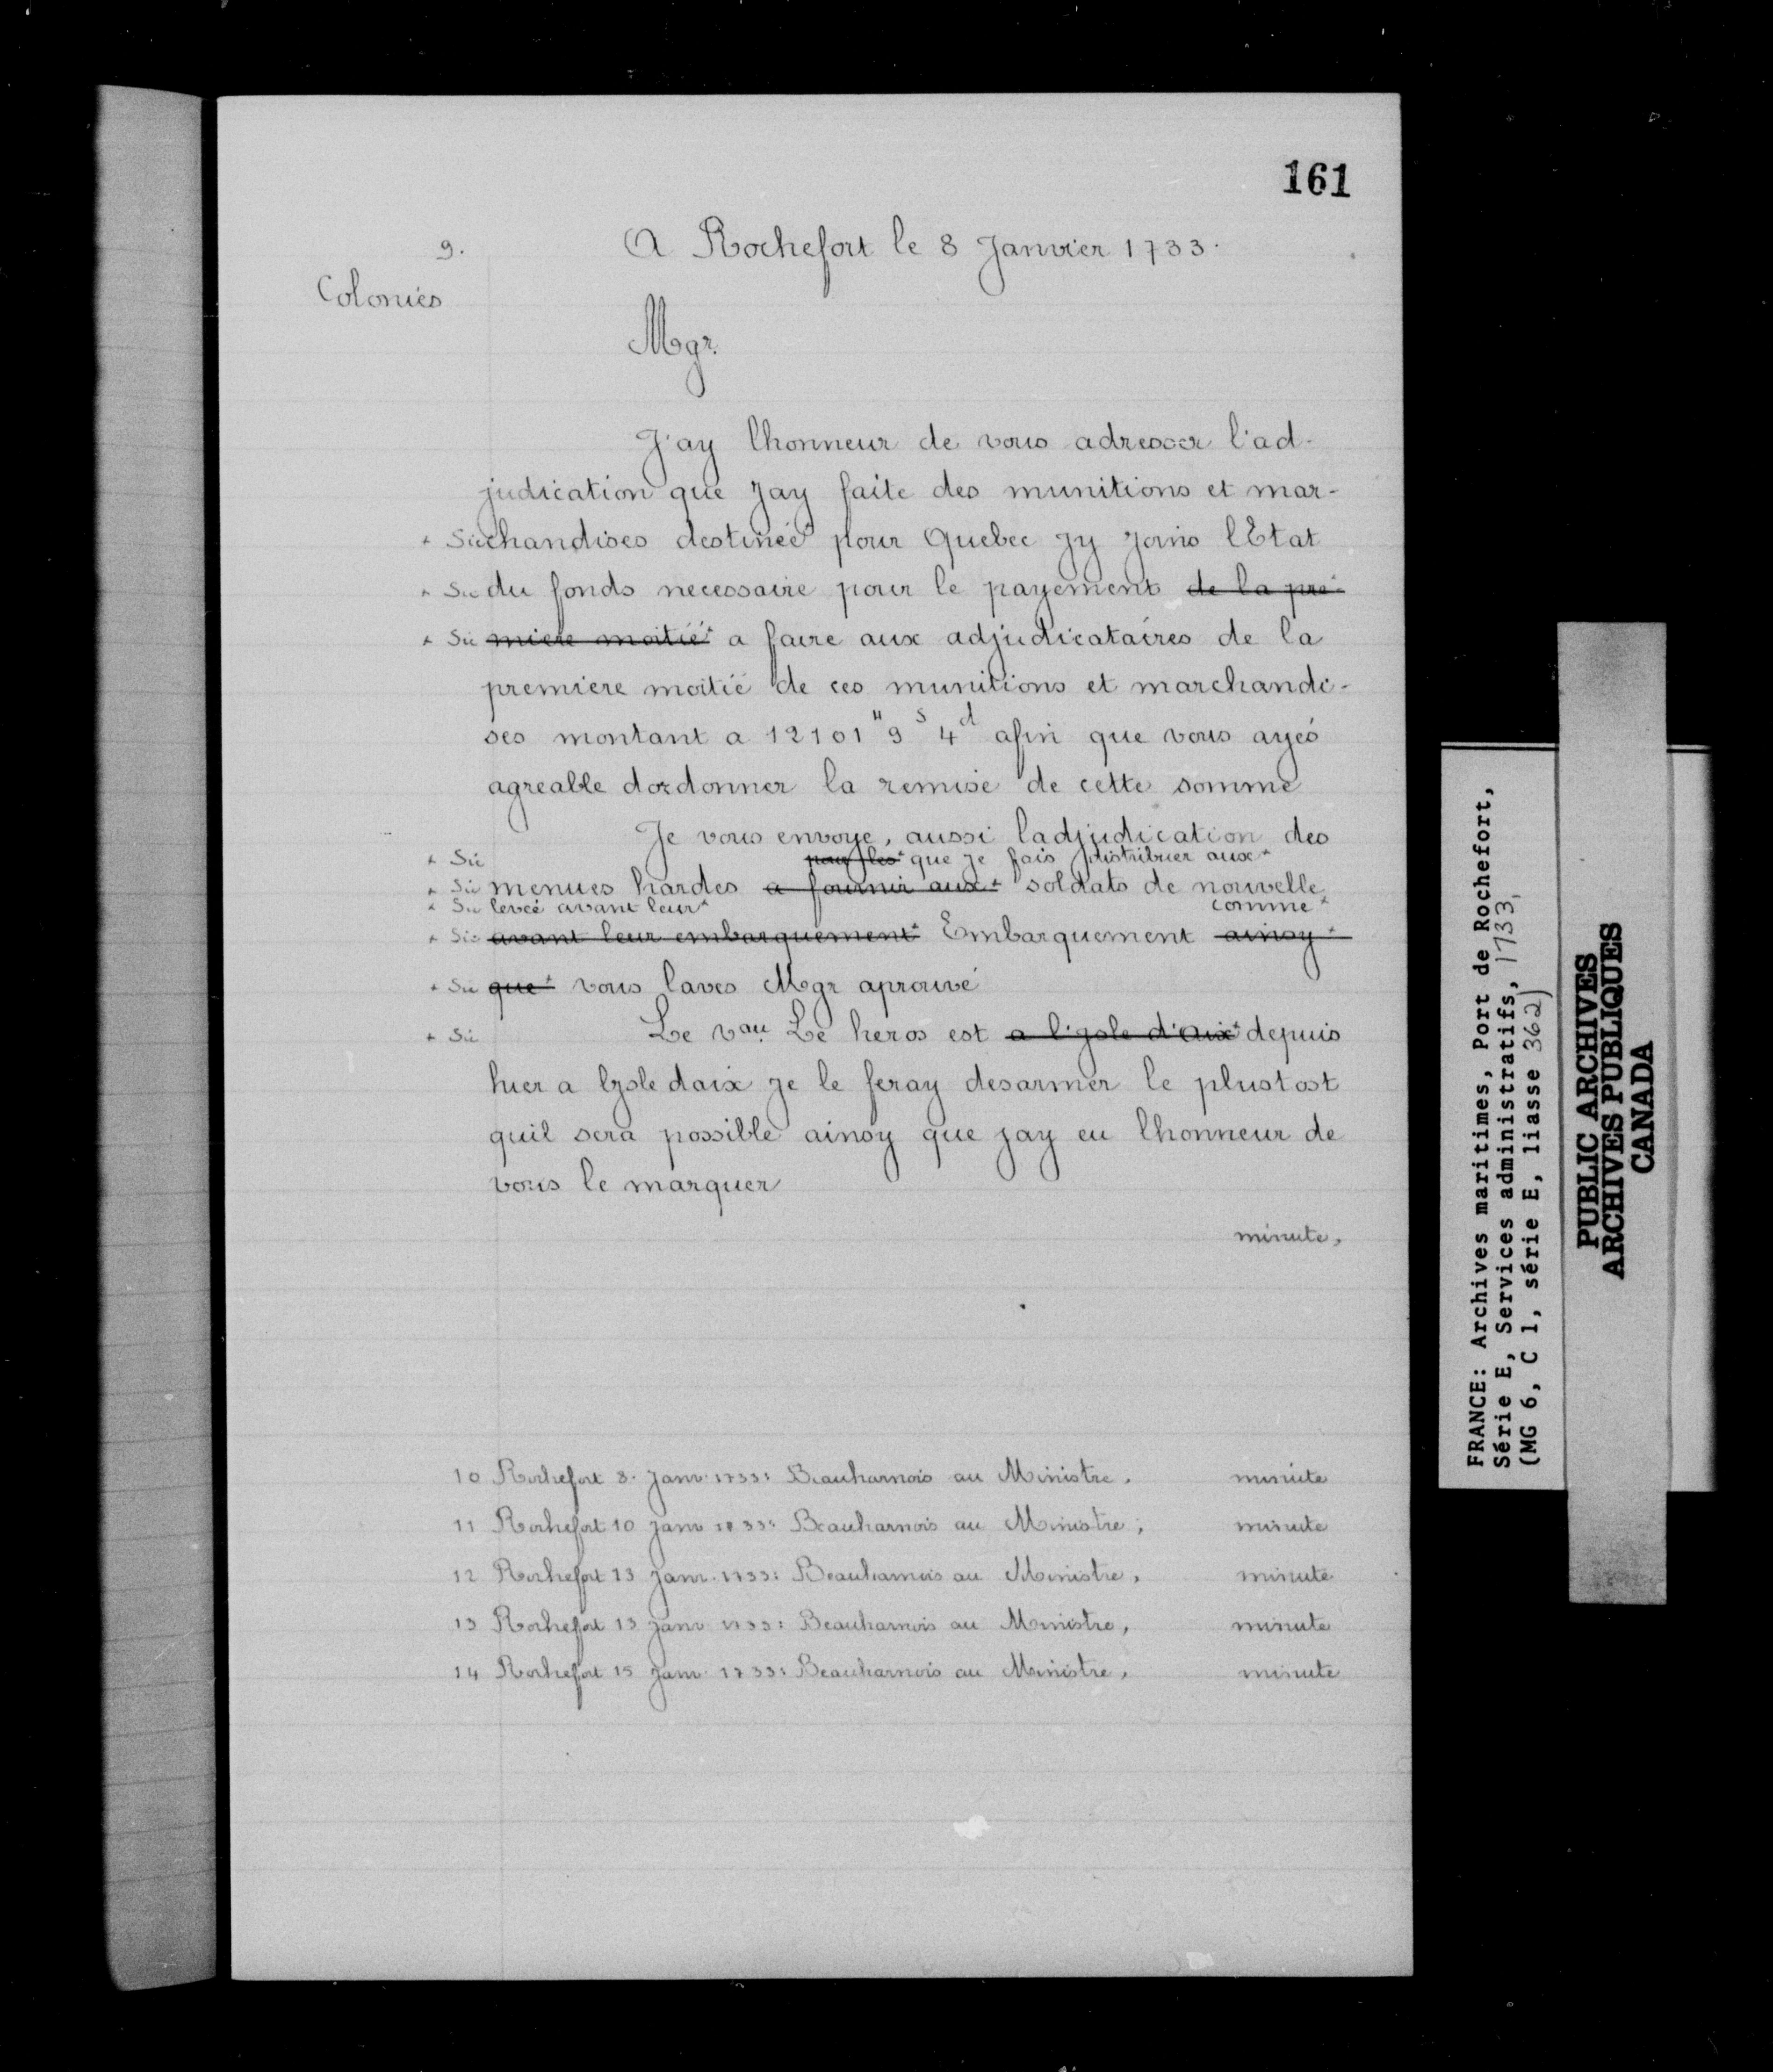 161
9. A Rochefort le 8 Janvier 1733.
Colonies
Mgr.
J'ay lhonneur de vous adresser l'ad-
judication que Jay faite des munitions et mar-
+ Sic chandises destinée+ pour Quebec Jy Joins lEtat
+ Sic du fonds necessaire pour le payement de la pre-
+ Sic miere moitié+ a faire aux adjudicataires de la
premiere moitié de ces munitions et marchandi-
ses montant a 12101" 9s 4d afin que vous ayés
agreable dordonner la remise de cette somme
Je vous envoye, aussi ladjudication des
+ Sic pour les+ que je fais distribuer aux+
+ Sic menues hardes a fournir aux+ soldats de nouvelle
+ Sic levée avant leur+ comme+
+ Sic avant leur embarquement+ Embarquement ainsy+
+ Sic que+ vous laves Mgr aprouvé
+ Sic Le vau. Le heros est a l'jsle d'aix+ depuis
hier a lysle daix je le feray desarmer le plustost
quil sera possible ainsy que jay eu lhonneur de
vous le marquer
minute,
10 Rochefort 8. Janv. 1733: Beauharnois au Ministre, minute
11 Rochefort 10 Janv 1733: Beauharnois au Ministre, minute
12 Rochefort 13 Janv. 1733: Beauharnois au Ministre, minute
13 Rochefort 13 Janv 1733: Beauharnois au Ministre, minute
14 Rochefort 15 Janv. 1733: Beauharnois au Ministre, minute
FRANCE: Archives maritimes, Port de Rochefort,
Série E, Services administratifs, 1733,
(MG 6, C 1, série E, liasse 362)
PUBLIC ARCHIVES
ARCHIVES PUBLIQUES
CANADA